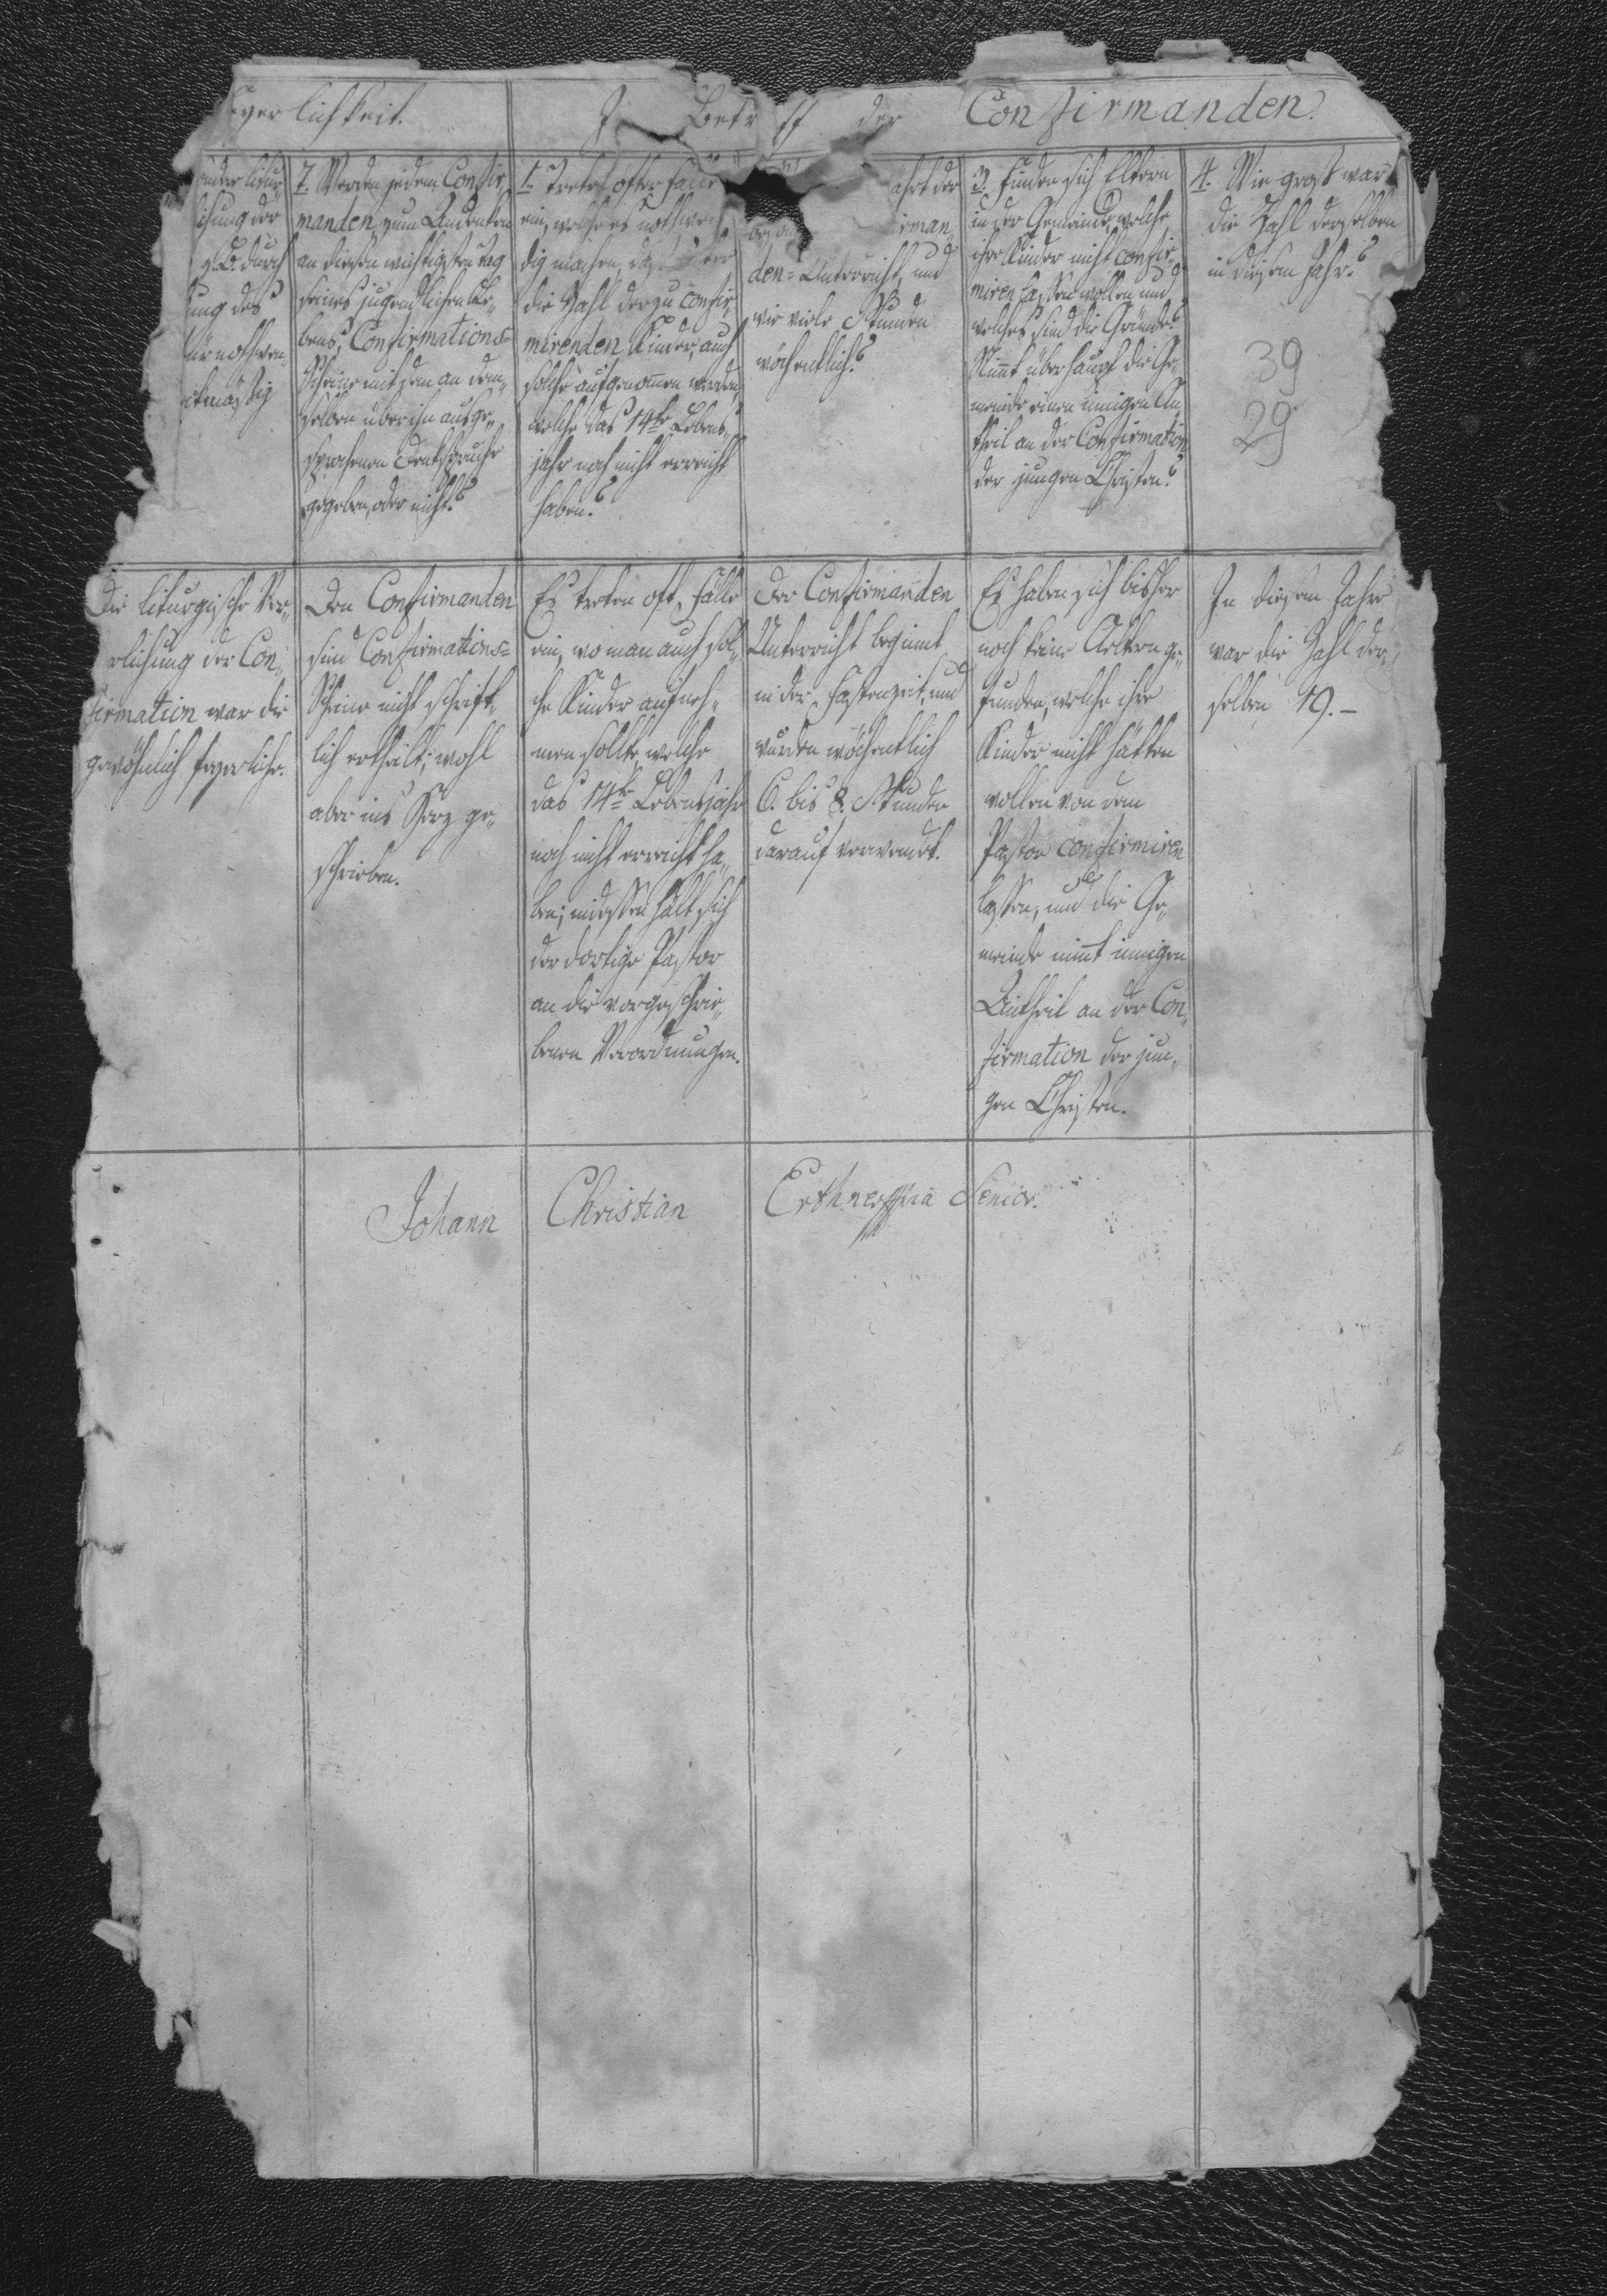 lichkeit.
Betr ff der Confirmanden.
der litur
chung der
z. B. durch
ung des
nothwen,
tmäßig
7. Werden jedem Confir,
manden zum Andenken
an diesen wichtigsten Tag
seines jugendlichen Le,
bens, Confirmations=
Scheine mit dem an dem,
selben über ihn ausge,
sprochenen Denkspruche
gegeben, oder nicht?
1. Treten öfter Fälle
ein, welche es nothwen
dig machen, daß
die Zahl der zu confir,
mirenden Kinder, auch
solche aufgenomen werden,
welche das 14te Lebens,
jahr noch nicht erreicht
haben?
ährt der
irman,
den=Unterricht, und
wie viele Stunden
wöchentlich?
3. Finden sich Eltern
in der Gemeinde, welche
ihre Kinder nicht confir,
miren lassen wollen und
welches sind die Gründe?
Nimt überhaupt die Ge,
meinde einen innigen An,
theil an der Confirmation
der jungen Christen?
4. Wie groß war
die Zahl derselben
in diesem Jahr?
39
29
Die liturgische Ver,
rlichung der Con,
firmation war die
gewöhnlich feyerliche.
Den Confirmanden
sind Confirmations=
Scheine nicht schrift,
lich ertheilt; wohl
aber ins Herz ge,
schrieben.
Es treten oft Fälle
ein, wo man auch sol,
che Kinder aufneh,
men sollte, welche
das 14te Lebensjahr
noch nicht erreicht ha,
ben; indessen hält sich
der dortige Pastor
an die vorgeschrie,
benen Verordnungen.
Der Confirmanden
Unterricht beginnt
in der Fastenzeit, und
wurden wöchentlich
6. bis 8. Stunden
darauf verwandt.
Es haben sich bisher
noch keine Aeltern ge,
funden, welche ihre
Kinder nicht hätten
wollen von dem
Pastor confirmiren
lassen, und die Ge,
meinde nimt innigen
Antheil an der Con,
firmation der jun,
gen Christen.
In diesem Jahre
war die Zahl der,
selben 19.–
Johann Christian Senior.